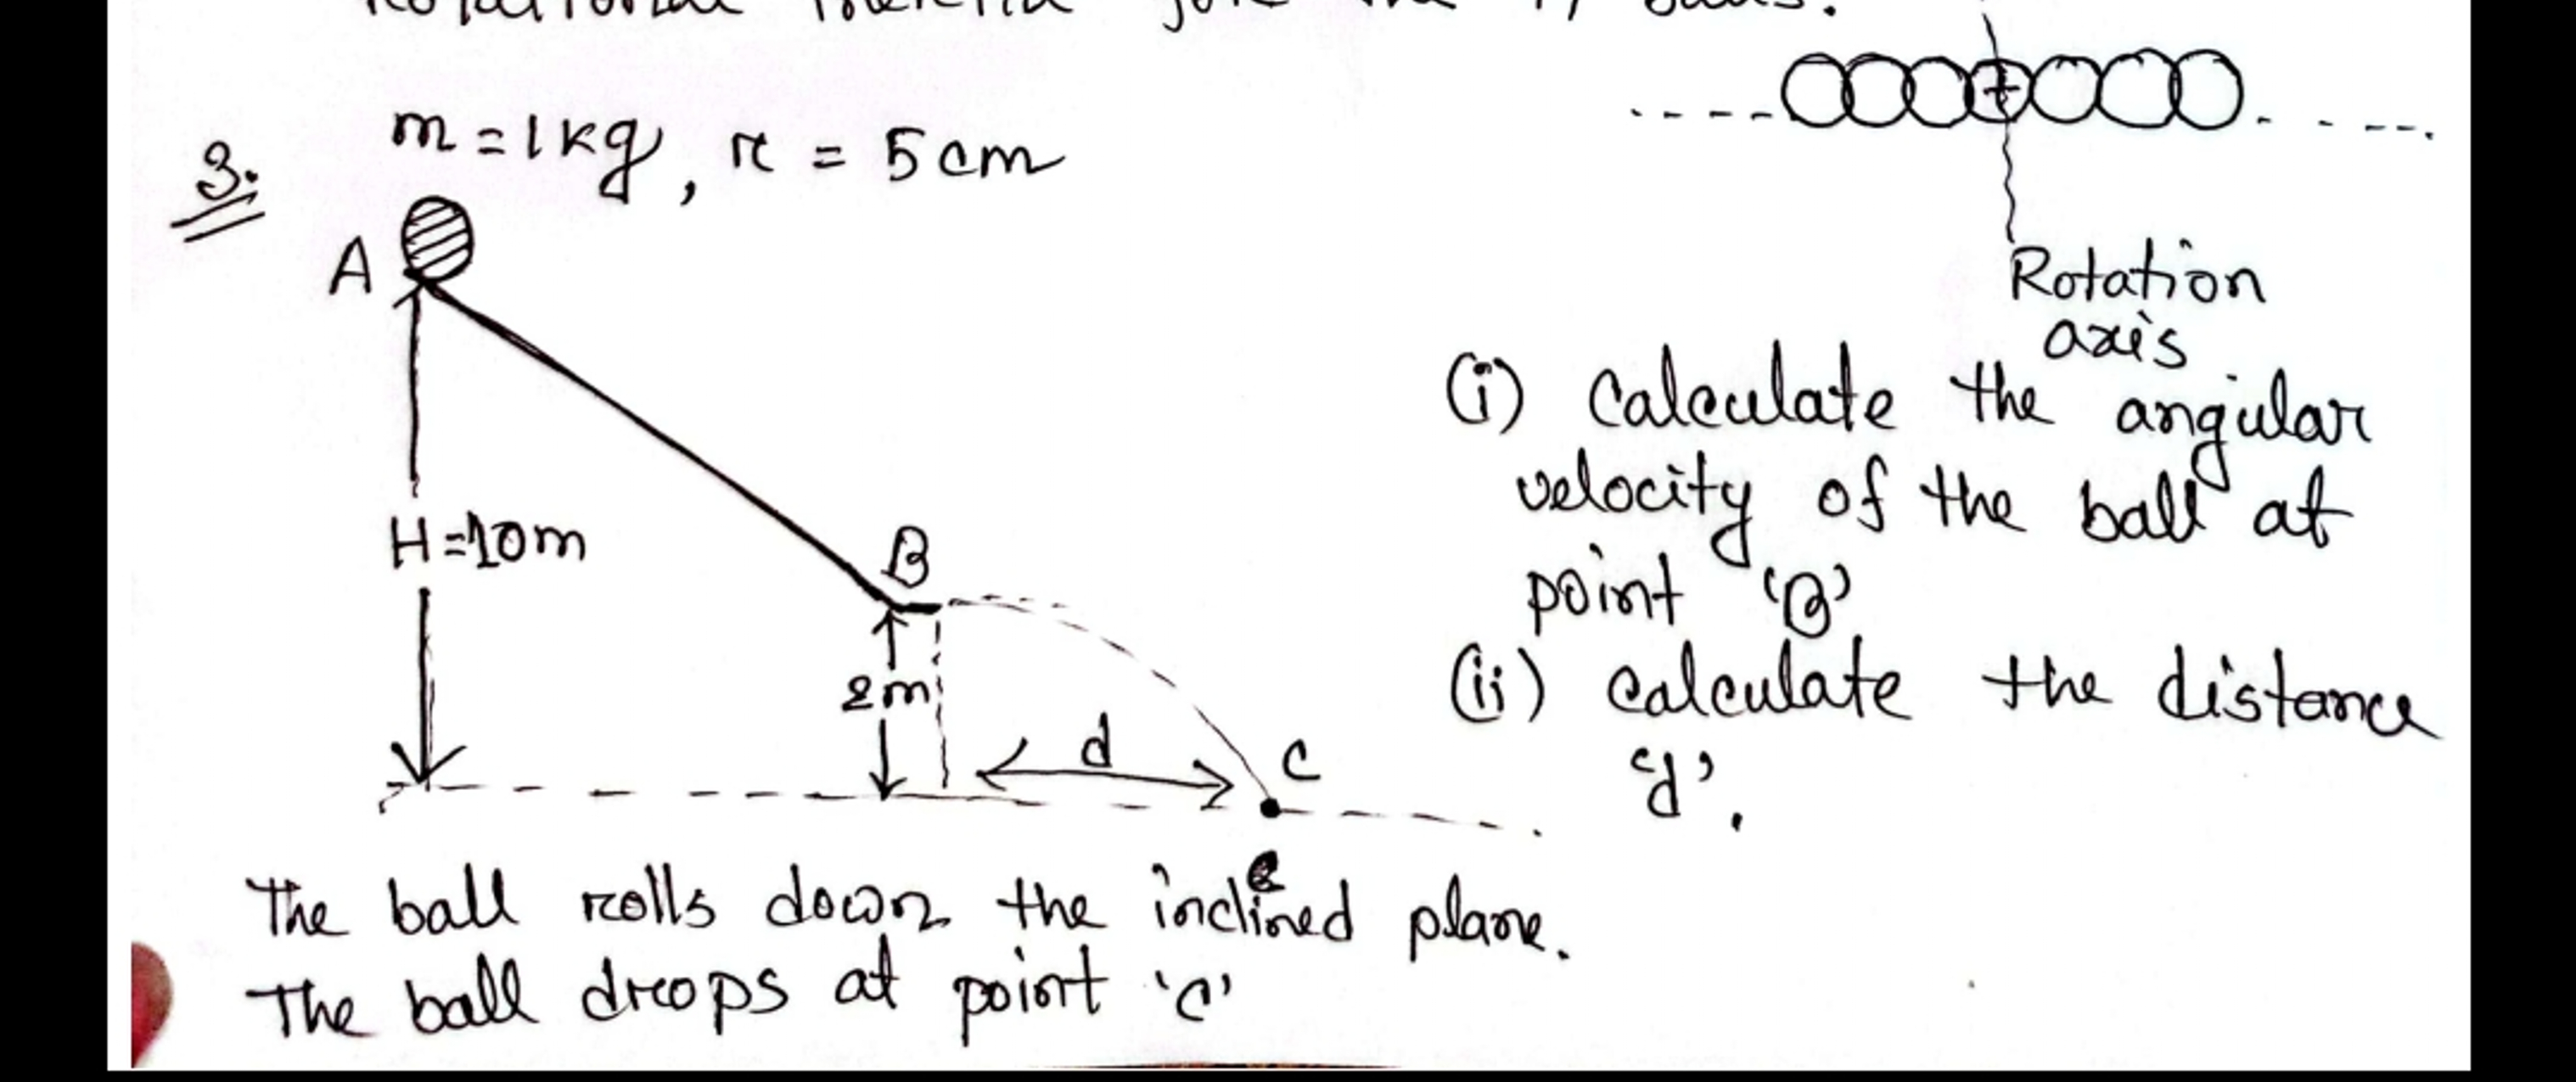 m = 1 kg, r = 5 cm
3.
A
H = 10m
B
2m
d
C
Rotation
axis
(i) Calculate the angular
velocity of the ball at
point 'B'
(ii) Calculate the distance
'd'.
The ball rolls down the inclined plane.
The ball drops at point 'C'